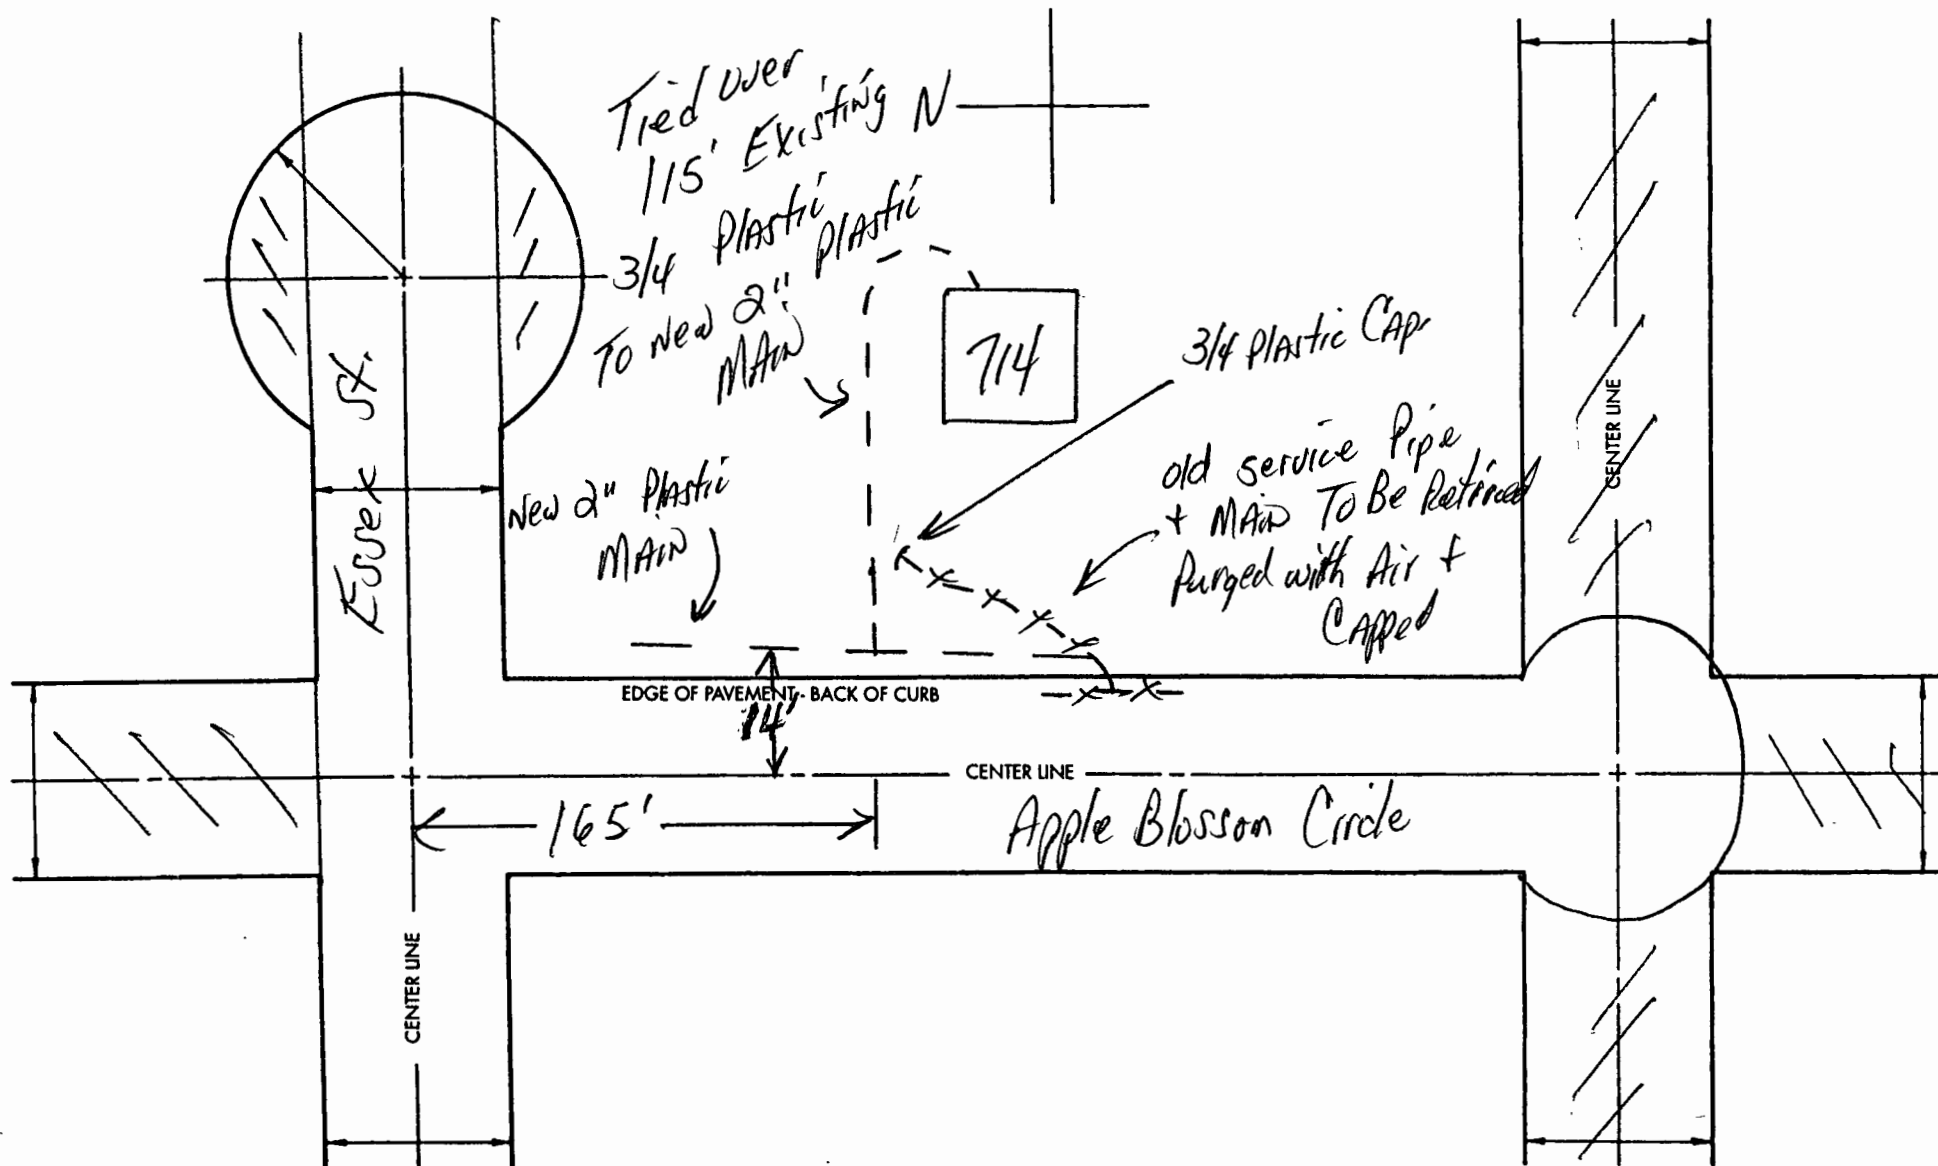 Tied over
115' Existing
3/4 Plastic
To New 2" Plastic
MAIN
N
714
3/4 Plastic Cap
old service Pipe
+ MAIN To Be Retired
Purged with Air +
Capped
New 2" Plastic
MAIN
Essex St.
EDGE OF PAVEMENT - BACK OF CURB
14'
CENTER LINE
165'
Apple Blossom Circle
CENTER LINE
CENTER LINE